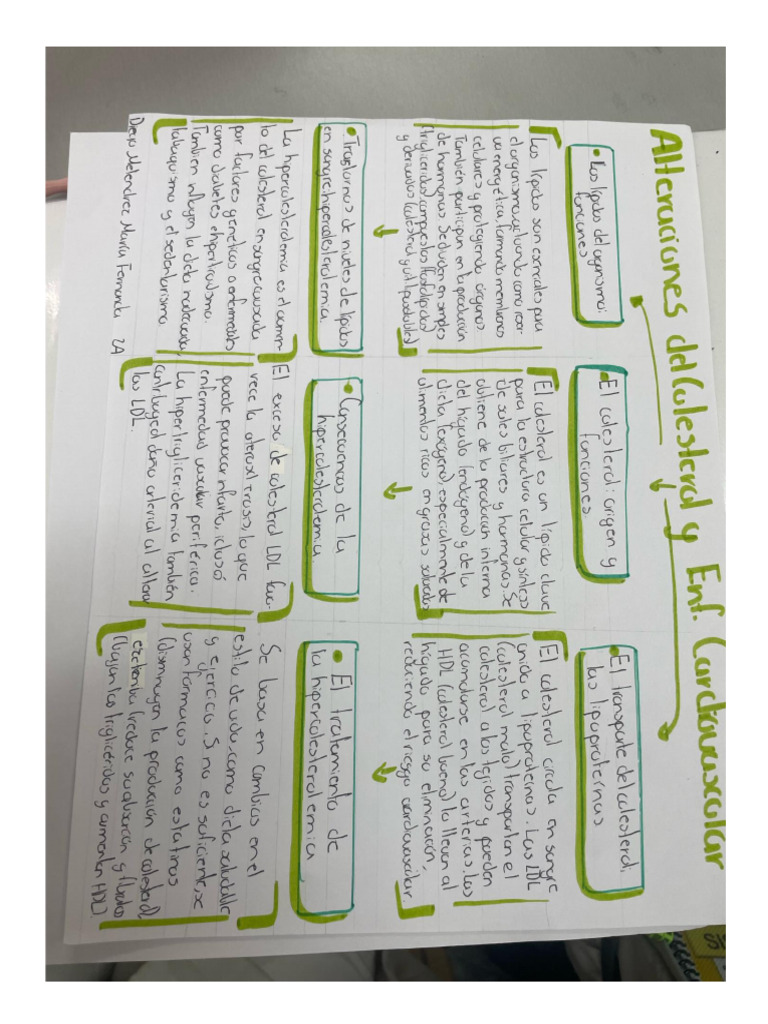 Alteraciones del Colesterol y Enf. Cardiovascular
• Los lípidos del organismo:
funciones
Los lípidos son esenciales para
el organismo, actuando como reser-
va energética, formando membranas
celulares y protegiendo órganos
También participan en la producción
de hormonas. Se dividen en simples
(triglicéridos), compuestos (fosfolípidos)
y derivados (colesterol y
• El colesterol: origen y
funciones.
El colesterol es un lípido clave
para la estructura celular y síntesis
de sales biliares y hormonas. Se
obtiene de la producción interna
del hígado (endógeno) y de la
dieta (exógeno), especialmente de
alimentos ricos en grasas saturadas
• El transporte del colesterol:
las lipoproteínas
El colesterol circula en sangre
unido a lipoproteínas. Las LDL
(colesterol malo) transportan el
colesterol a los tejidos y pueden
acumularse en las arterias. Las
HDL (colesterol bueno) lo llevan al
hígado para su eliminación,
reduciendo el riesgo cardiovascular.
• Trastornos de niveles de lípidos
en sangre: hipercolesterolemica.
La hipercolesterolemia es el aumen-
to del colesterol en sangre causada
por factores geneticos o enfermedades
como diabetes e hipotiroidismo.
También influyen la dieta inadecuada,
tabaquismo y el sedentarismo
• Consecuencias de la
hipercolesterolemia.
El exceso de colesterol LDL favo-
rece la aterosclerosis, lo que
puede provocar infarto, ictus o
enfermedad vascular periférica.
La hipertrigliceridemia también
contribuye al daño arterial al alterar
las LDL.
• El tratamiento de
la hipercolesterolemia
Se basa en cambios en el
estilo de vida, como dieta saludable
y ejercicio. Si no es suficiente, se
usan fármacos como estatinas
(disminuyen la producción de colesterol)
ezetimiba (reduce su absorción) y fibratos
(bajan los triglicéridos y aumentan HDL).
Diego Melendrez María Fernanda 2A